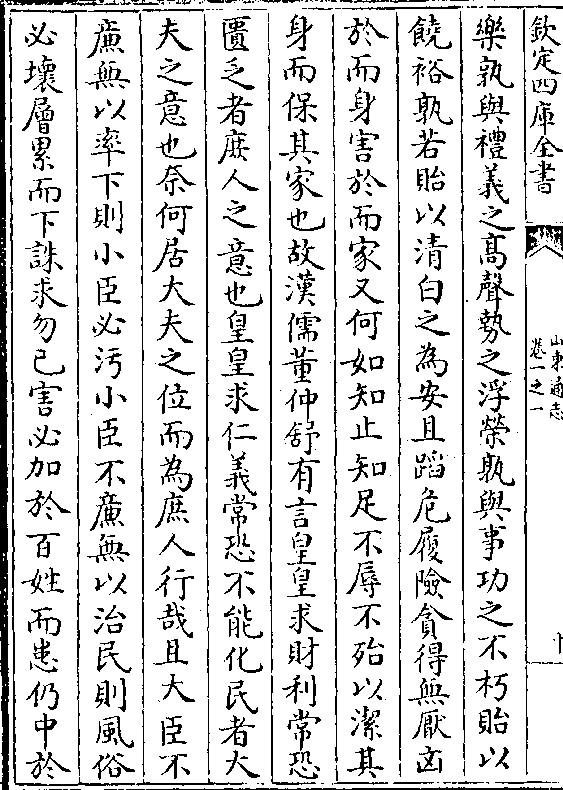 欽定四庫全書
山東通志
卷一之一
十
樂孰與禮義之髙聲勢之浮榮孰與事功之不朽貽以
饒裕孰若貽以清白之為安且蹈危履險貪得無厭凶
於而身害於而家又何如知止知足不辱不殆以潔其
身而保其家也故漢儒董仲舒有言皇皇求財利常恐
匱乏者庶人之意也皇皇求仁義常恐不能化民者大
夫之意也奈何居大夫之位而為庶人行哉且大臣不
亷無以率下則小臣必污小臣不亷無以治民則風俗
必壊層累而下誅求勿已害必加於百姓而患仍中於